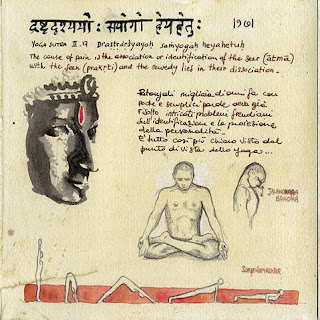 द्रष्टृदृश्ययोः संयोगो हेयहेतुः
YOGA SUTRA II.17 Drastrdrśyayoh samyogah heyahetuh
The cause of pain is the association or identification of the seer (ātmā)
with the seen (prakrti) and the remedy lies in their dissociation.
Patanjali migliaia di anni fa con
poche e semplici parole aveva già
risolto intricati problemi freudiani
sull'identificazione e la proiezione
della personalità.
E' tutto così più chiaro visto dal
punto di vista dello Yoga...
JALANDHARA
BANDHA
SURYANAMASKAR